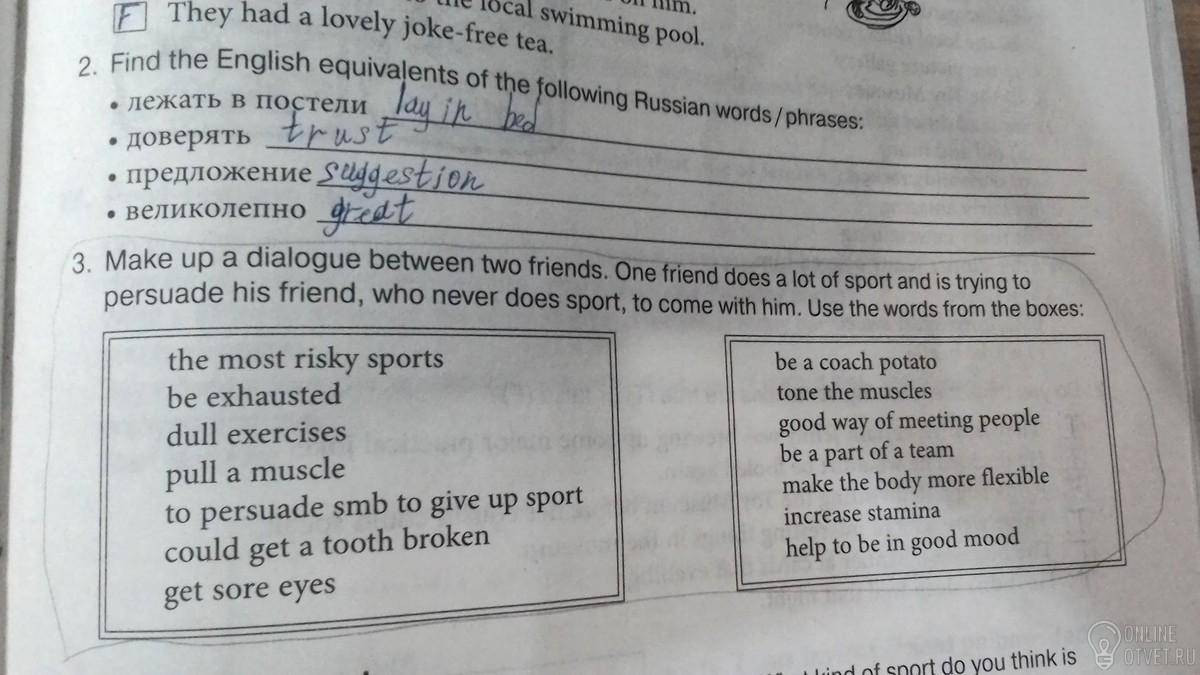 the local swimming pool.
F They had a lovely joke-free tea.
2. Find the English equivalents of the following Russian words/phrases:
• лежать в постели lay in bed
• доверять trust
• предложение suggestion
• великолепно great
3. Make up a dialogue between two friends. One friend does a lot of sport and is trying to
persuade his friend, who never does sport, to come with him. Use the words from the boxes:
the most risky sports
be exhausted
dull exercises
pull a muscle
to persuade smb to give up sport
could get a tooth broken
get sore eyes
be a coach potato
tone the muscles
good way of meeting people
be a part of a team
make the body more flexible
increase stamina
help to be in good mood
kind of sport do you think is
ONLINE
OTVET.RU